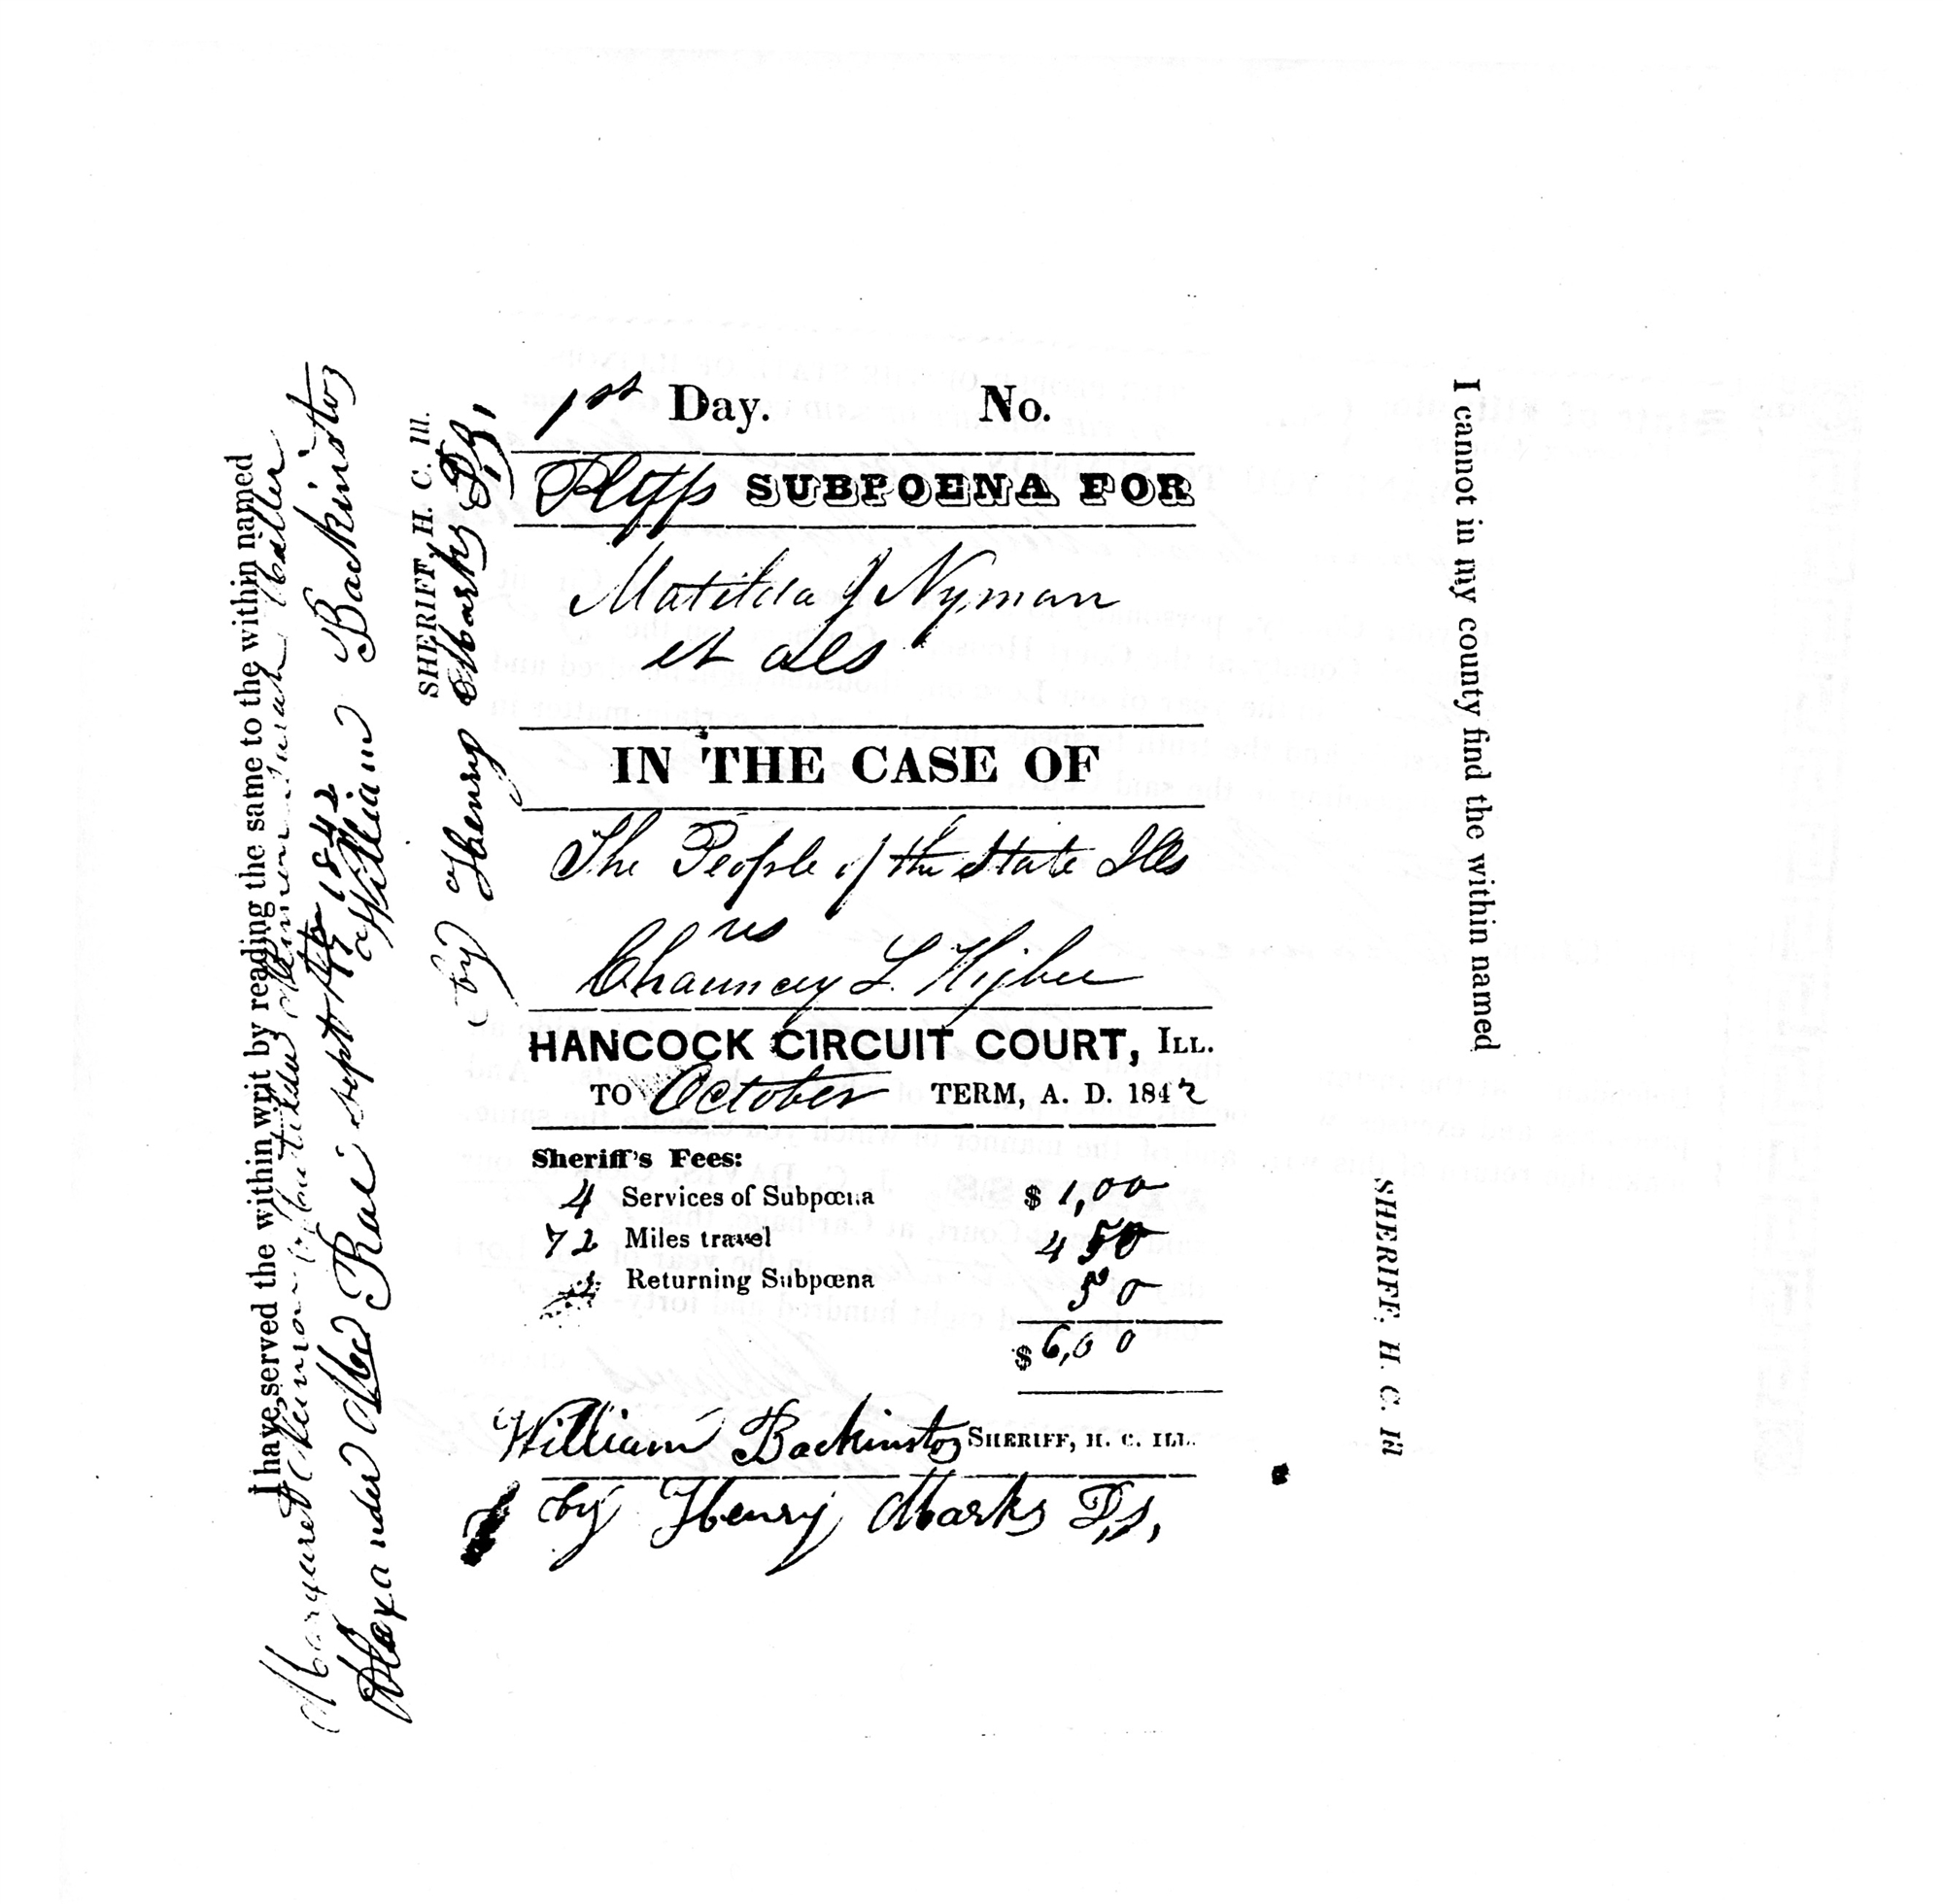 1st Day. No.
Pltffs SUBPOENA FOR
Matilda J Nyman
et als
IN THE CASE OF
The People of the State Ills
vs
Chauncey L. Higbee
HANCOCK CIRCUIT COURT, ILL.
TO October TERM, A. D. 1842
Sheriff's Fees:
4 Services of Subpœna $ 1,00
72 Miles travel 4 50
Returning Subpœna 50
$ 6,00
William Backinstos SHERIFF, H. C. ILL.
by Henry Marks D,S,
I have served the within writ by reading the same to the within named
Margaret Neiman Matilda Neiman Sarah Miller
Alexander Mc Rae sept 1842
William Backinstos
SHERIFF, H. C. Ill.
by Henry Marks D,S,
I cannot in my county find the within named
SHERIFF, H. C. Ill